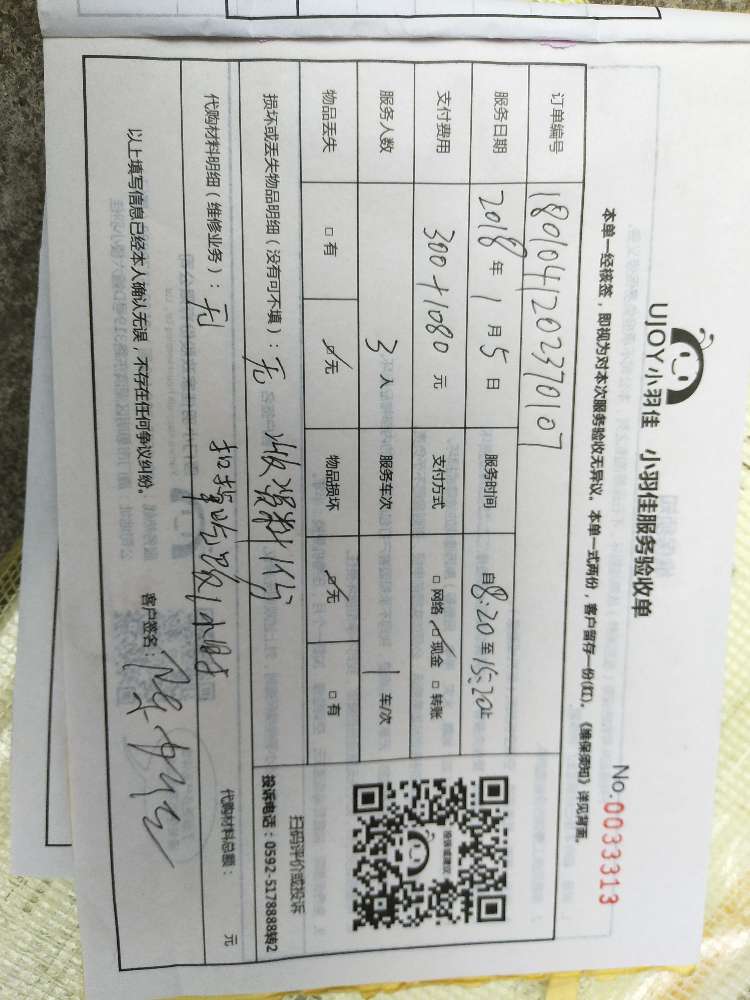 UJOY小羽佳 小羽佳服务验收单
No.0033313
本单一经核签，即视为对本次服务验收无异议。本单一式两份，客户留存一份(红)。《维保须知》详见背面。
订单编号 1801041202370107
服务日期 2018年1月5日 服务时间 自8:20至15:20止
支付费用 300+1080元 支付方式 □网络 ☑现金 □转账
服务人数 3人 服务车次 1车/次
物品丢失 □有 ☑无 物品损坏 ☑无 □有
损坏或丢失物品明细（没有可不填）：无 收资料1份
扫码评价或投诉
投诉电话：0592-5178888转2
代购材料明细（维修业务）：无 扣 1小时
代购材料总额： 元
以上填写信息已经本人确认无误，不存在任何争议纠纷。 客户签名：